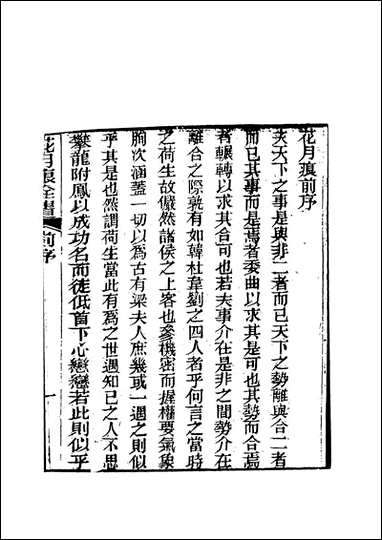 花月痕前序
夫天下之事是與非二者而已天下之勢離與合二者
而已其事而是焉者委曲以求其是可也其勢而合焉
者輾轉以求其合可也若夫事介在是非之間勢介在
離合之際孰有如韓杜韋劉之四人者乎何言之當時
之荷生故儼然諸侯之上客也參機密而握權要氣象
胸次涵蓋一切以爲古有梁夫人庶幾或一遇之則似
乎其是也然謂荷生當此有爲之世遇知己之人不思
攀龍附鳳以成功名而徒低首下心戀戀若此則似乎
花月痕全書 前序 一